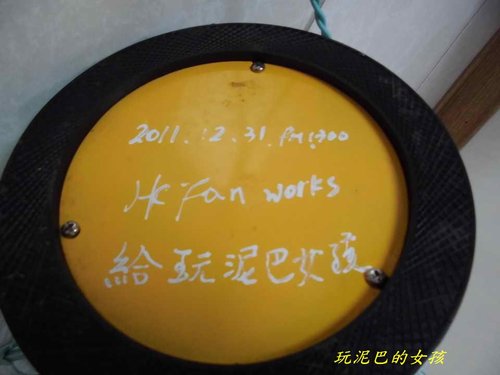 2011.12.31. PM1700
HK Fan works
給玩泥巴女孩
玩泥巴的女孩